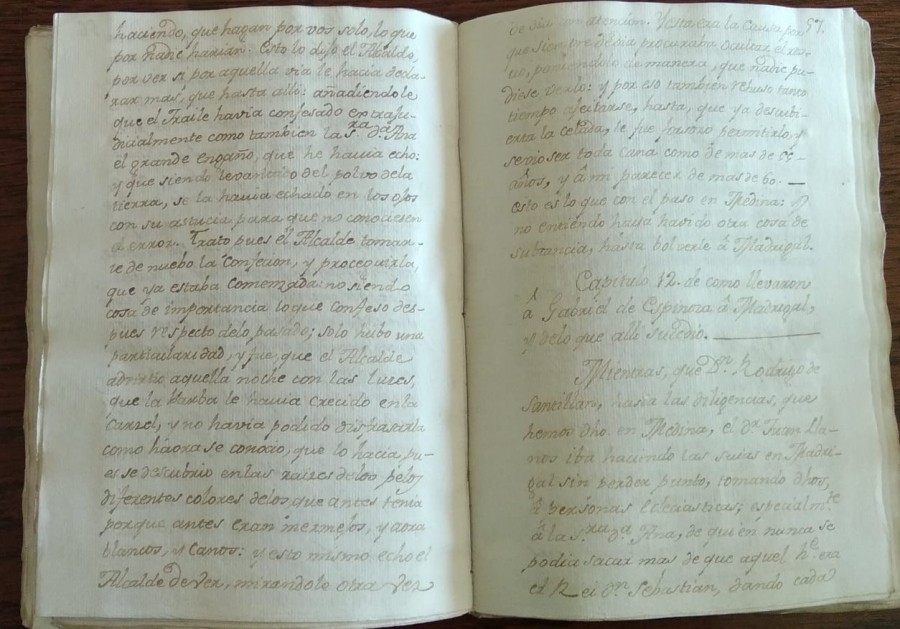 haciendo, que hagan por vos solo, lo que
por nadie harian. Esto lo dijo el Alcalde,
por ver si por aquella via le hacia decla-
rar mas, que hasta alli: añadiendole
que el Fraile havia confesado extraju-
dicialmente como tambien la S.ra D.a Ana
el grande engaño, que he havia echo:
y que siendo levantado del polvo dela
tierra, se la havia echado en los ojos
con su astucia, para que no conociesen
el error. Trato pues el Alcalde tomar-
te de nuebo la Confesion, y procequirla,
que ya estaba comenzada: no siendo
cosa de importancia loque confeso des-
pues respecto delo pasado; solo hubo una
particularidad, y fue, que el Alcalde
advirtio aquella noche con las luces,
que la barba le havia crecido en la
Carzel, y no havia podido disfrasarla
como háora se conocio, que lo hacia, pu-
es se descubrio en las raizes delos pelos
diferentes colores delos que antes tenia
porque antes eran mermejos, y aora
blancos, y Canos: y esto mismo echo el
Alcalde de ver, mirandole otra vez
57.
de dia con atencion. Y esta era la Causa por
que siempre de dia procuraba ocultar el ros-
tro, poniendolo de manera, que nadie pu-
diese verlo: y por eso tambien rehuso tanto
tiempo afeitarse, hasta, que ya descubi-
erta la celada, le fue forzoso permitirlo, y
se vio ser toda cana como de mas de 55
años, y â mi parecer de mas de 60.—
Esto es lo que con el paso en Medina: y
no entiendo haya havido otra cosa de
substancia, hasta bolverle â Madrigal.
Capitulo 12. de como llevaron
â Gabriel de Espinosa â Madrigal,
y delo que alli sucedio.
Mientras, que D.n Rodrigo de
Santillan, hacia las diligencias, que
hemos dho. en Medina, el D.r Juan Lla-
nos iba haciendo las suias en Madri-
gal sin perder punto, tomando dhos,
â personas Eclesiasticas; especialm.te
â la S.ra D.a Ana, de quien nunca se
podia sacar mas de que aquel h.e era
el Rei D.n Sebastian, dando cada